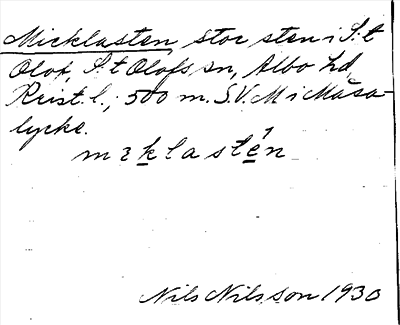 Micklasten, stor sten i S:t
Olof, S:t Olofs sn, Albo hd,
Krist. l., 500 m. S.V. Mickasa-
lycke.
mɛklastén
Nils Nilsson 1930